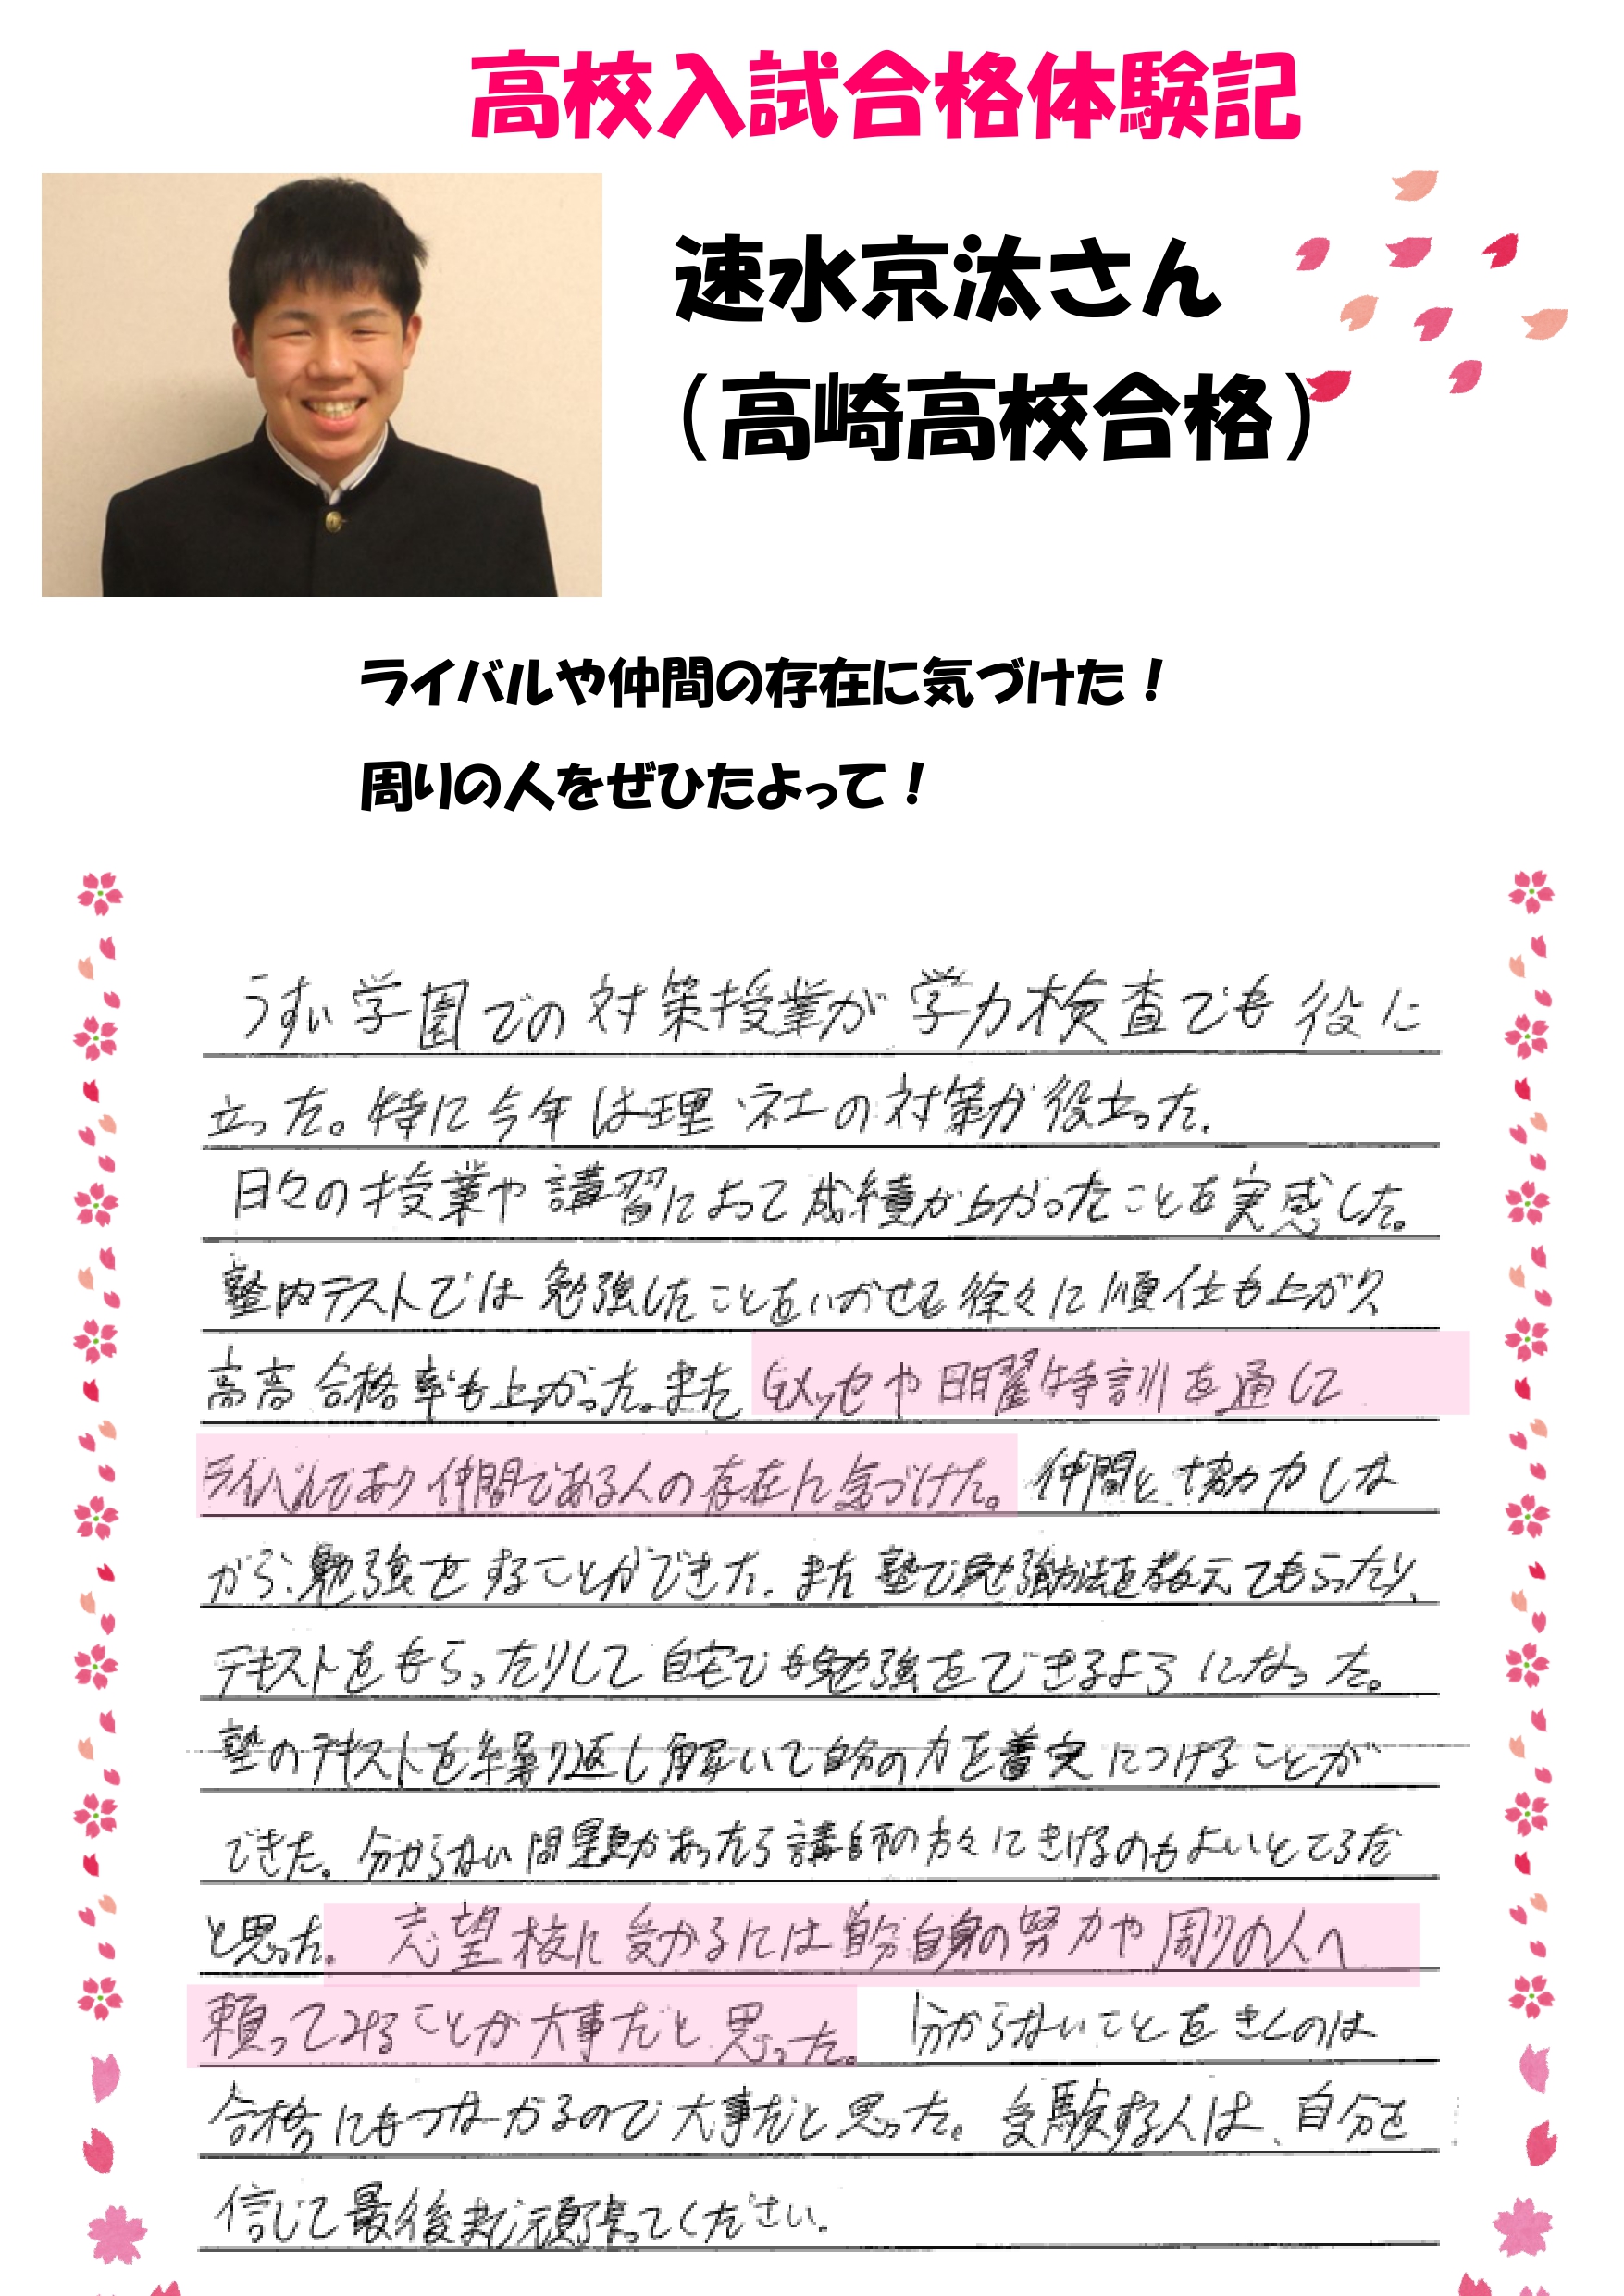 高校入試合格体験記
速水京汰さん
（高崎高校合格）
ライバルや仲間の存在に気づけた！
周りの人をぜひたよって！
うすい学園での対策授業が学力検査でも役に
立った。特に今年は理・社の対策が役立った。
日々の授業や講習によって成績が上がったことを実感した。
塾内テストでは勉強したことをいかせて徐々に順位も上がり、
高高合格率も上がった。また Gメッセや日曜特訓を通して
ライバルであり仲間である人の存在に気づけた。仲間と協力しな
がら勉強をすることができた。また塾で勉強方法を教えてもらったり、
テキストをもらったりして自宅でも勉強をできるようになった。
塾のテキストを繰り返し解いて自分の力を着実につけることが
できた。分からない問題があったら講師の方々にきけるのもよいところだ
と思った。志望校に受かるには自分自身の努力や周りの人へ
頼ってみることが大事だと思った。分からないことをきくのは
合格にもつながるので大事だと思った。受験する人は、自分を
信じて最後まで頑張ってください。